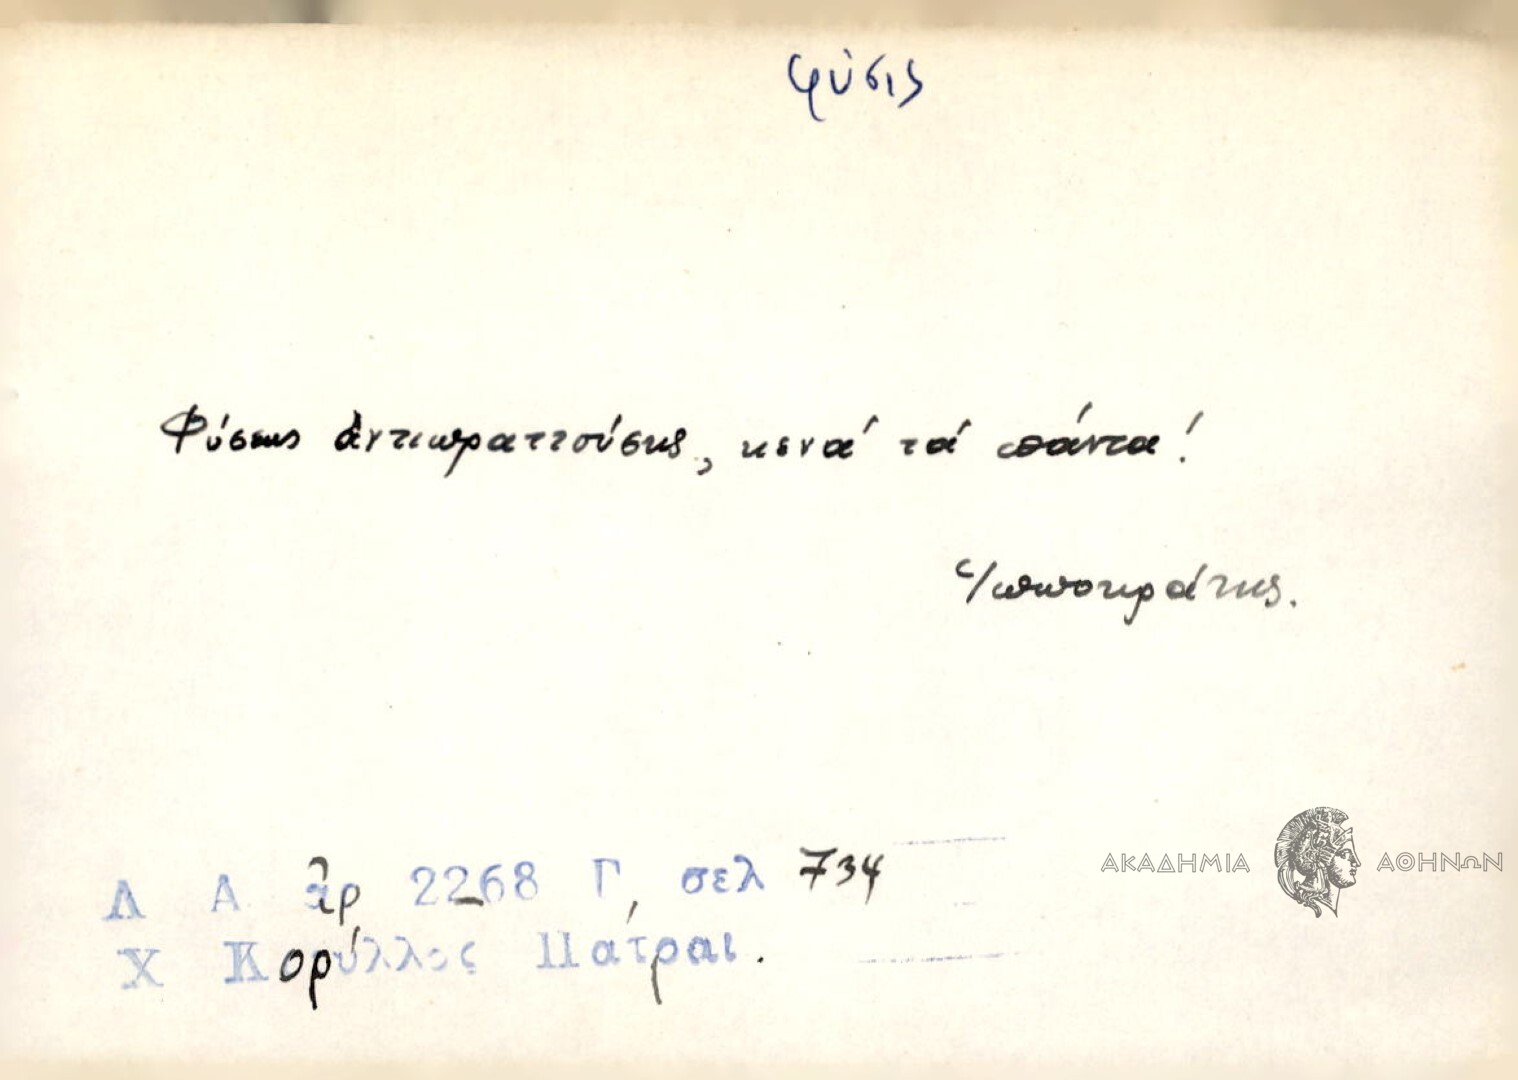 φύσις
Φύσεως ἀντιπραττούσης, κενά τά πάντα!
Ἱπποκράτης.
Λ Α ἀρ 2268 Γ, σελ 734
Χ Κορύλλος Πάτραι.
ΑΚΑΔΗΜΙΑ ΑΘΗΝΩΝ